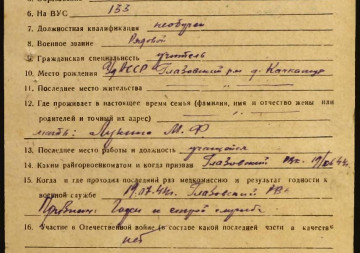 6. На ВУС 133
7. Должностная квалификация необучен
8. Военное звание Рядовой
9. Гражданская специальность учитель
10. Место рождения УдАССР Глазовский р-н д.
11. Последнее место жительства — " —
12. Где проживает в настоящее время семья (фамилия, имя и отчество жены или
родителей и точный их адрес)
мать: М. Ф
13. Последнее место работы и должность учащийся
14. Каким райгорвоенкоматом и когда призван Глазовский РВК
15. Когда и где проходил последний раз медкомиссию и результат годности к
военной службе 19.07.44г. Глазовский РВК
Годен к строевой службе
16. Участие в Отечественной войне (в составе какой последней части и качестве
нет